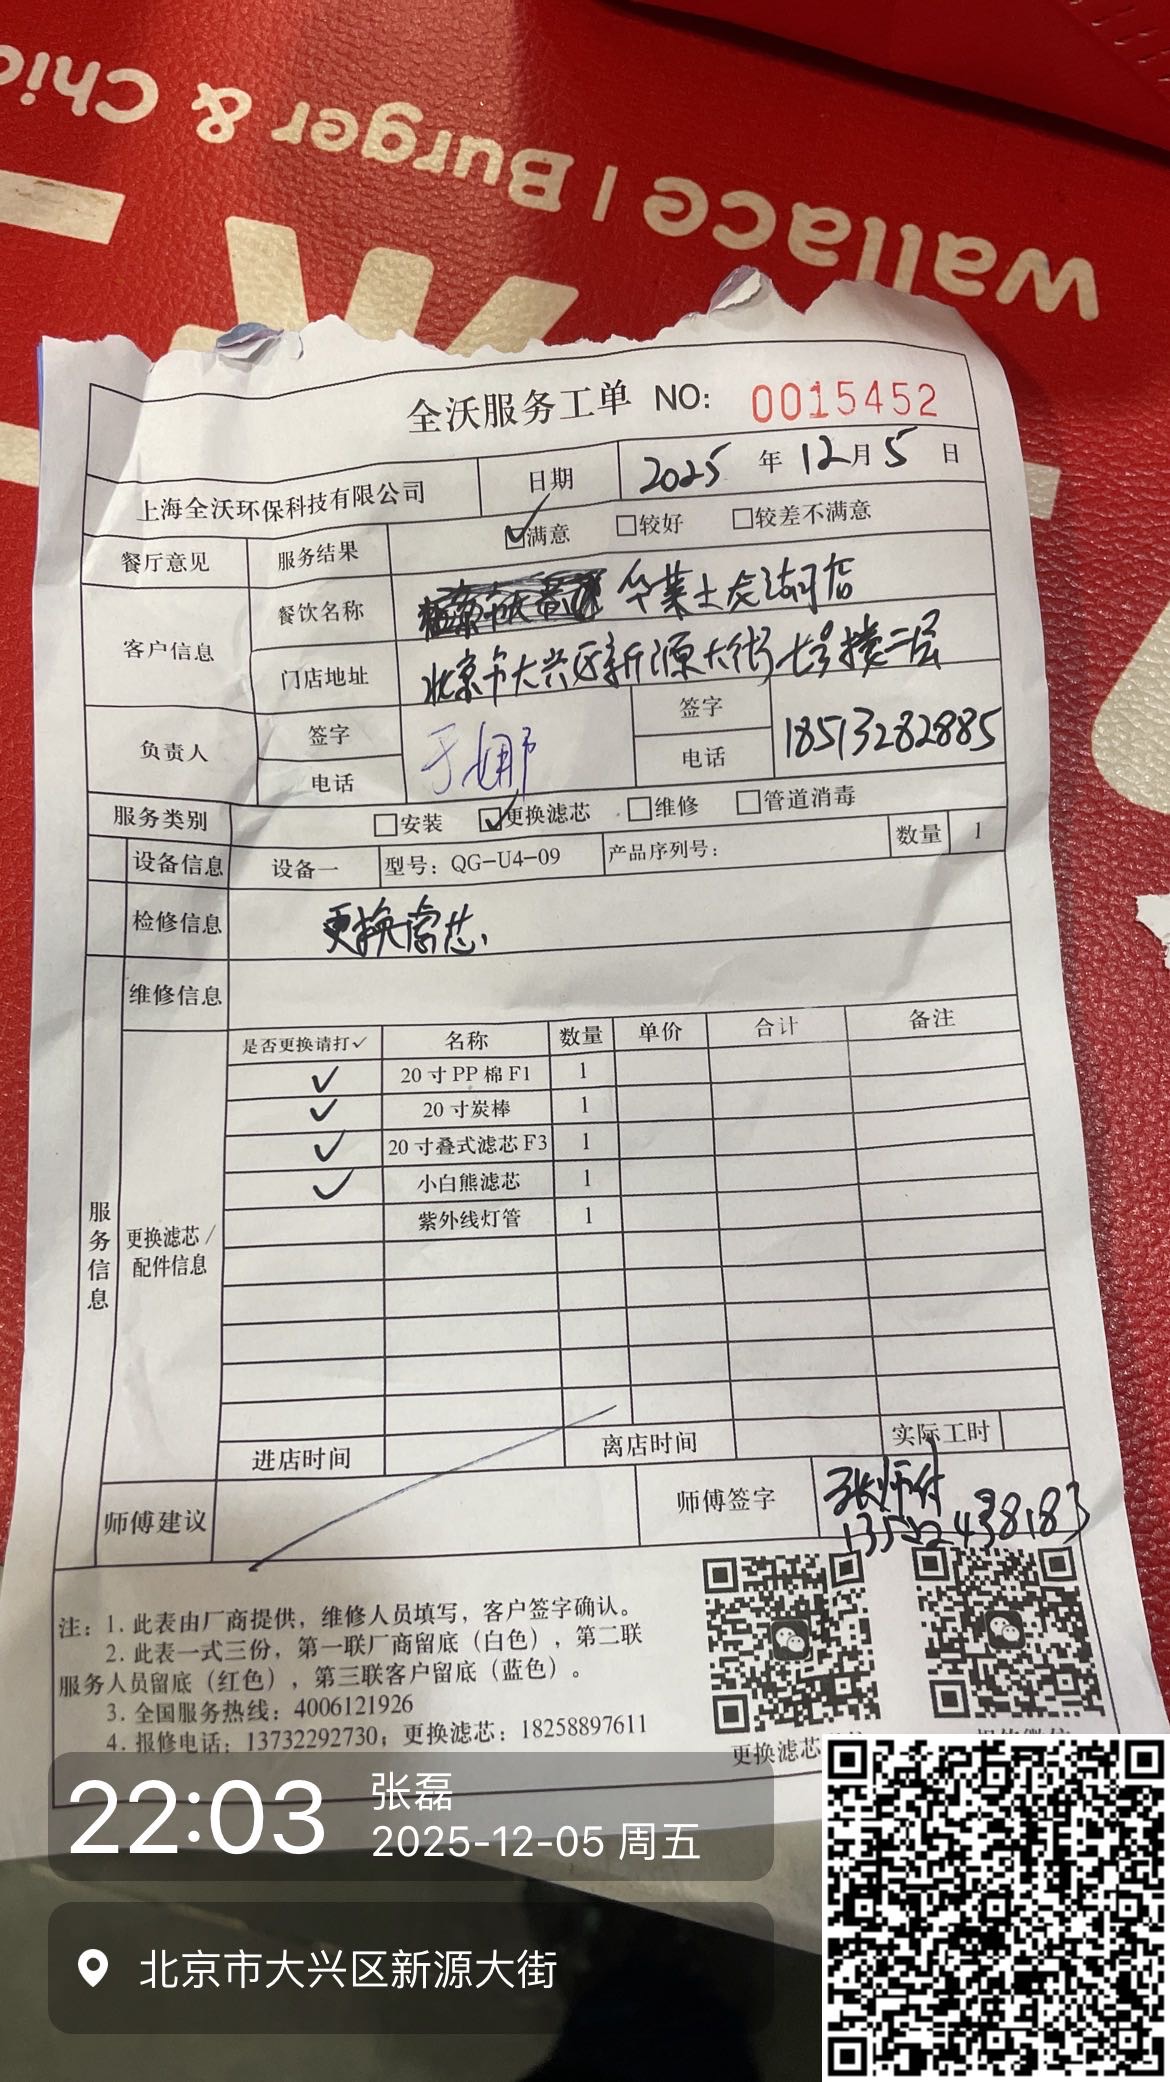 Wallace | Burger & Chic
全沃服务工单 NO: 0015452
上海全沃环保科技有限公司 日期 2025 年 12 月 5 日
餐厅意见 服务结果 ☑满意 □较好 □较差不满意
客户信息 餐饮名称 华莱士店
门店地址 北京市大兴区新源大街七号楼二层
负责人 签字 于娜 签字
电话 电话 18513282885
服务类别 □安装 ☑更换滤芯 □维修 □管道消毒
设备信息 设备一 型号：QG-U4-09 产品序列号： 数量 1
检修信息 更换滤芯
维修信息
服务信息
更换滤芯/
配件信息
是否更换请打✓ 名称 数量 单价 合计 备注
✓ 20 寸 PP 棉 F1 1
✓ 20 寸炭棒 1
✓ 20 寸叠式滤芯 F3 1
✓ 小白熊滤芯 1
紫外线灯管 1
进店时间 离店时间 实际工时
师傅建议 师傅签字 张师付
13522438183
注：1. 此表由厂商提供，维修人员填写，客户签字确认。
2. 此表一式三份，第一联厂商留底（白色），第二联
服务人员留底（红色），第三联客户留底（蓝色）。
3. 全国服务热线：4006121926
4. 报修电话：13732292730；更换滤芯：18258897611
更换滤芯
22:03 张磊
2025-12-05 周五
北京市大兴区新源大街